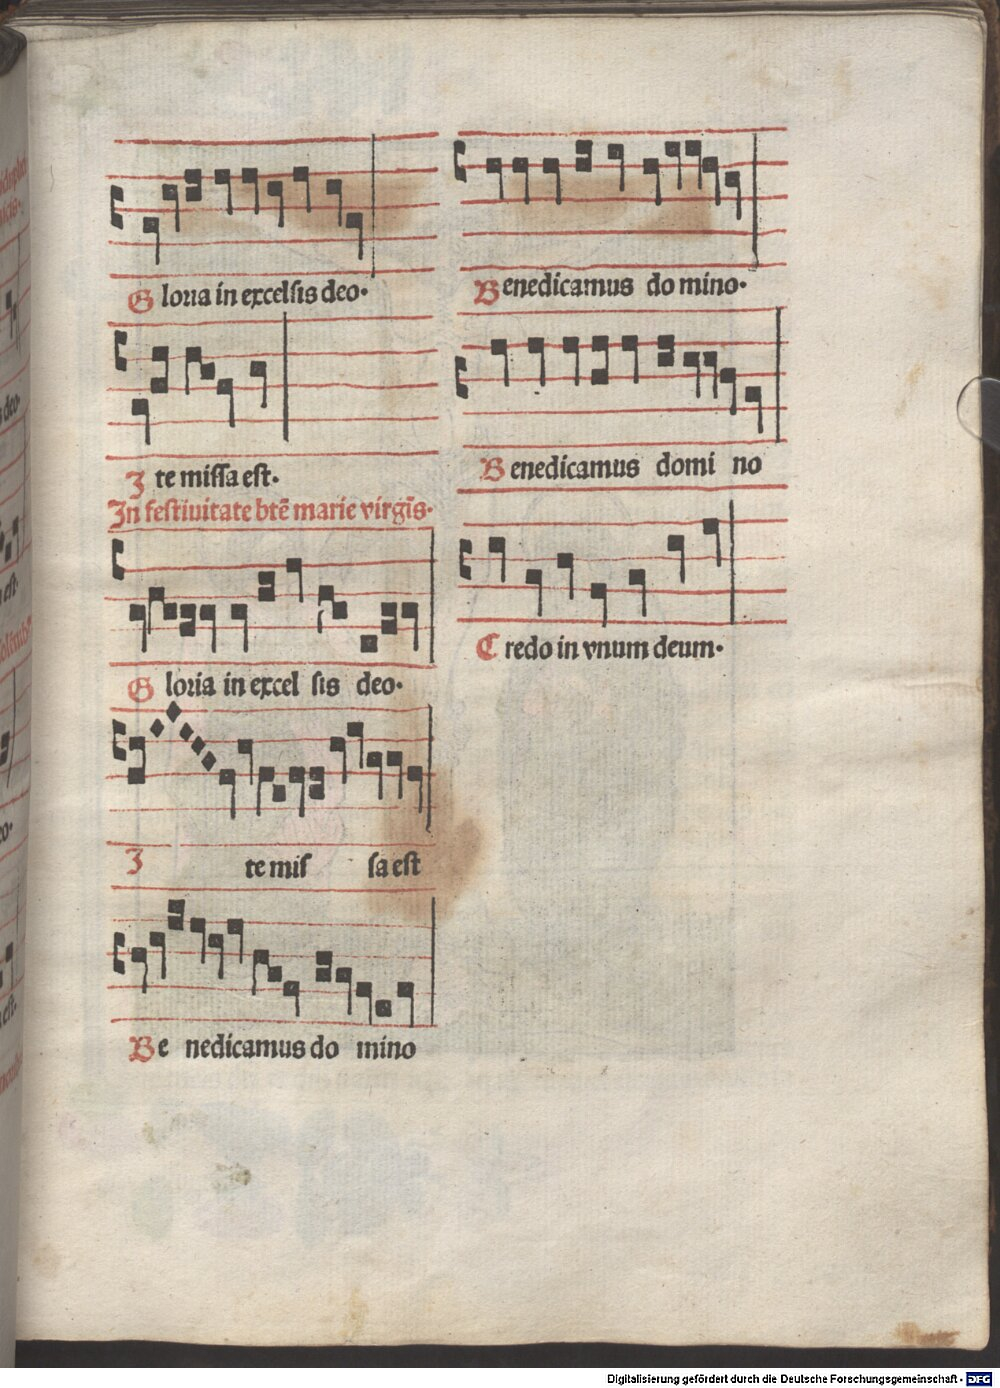 Gloria in excelsis deo.
Ite missa est.
In festiuitate btē marie virgīs.
Gloria in excel sis deo.
Ite mis sa est
Be nedicamus do mino
Benedicamus do mino.
Benedicamus domi no
Credo in vnum deum.
Digitalisierung gefördert durch die Deutsche Forschungsgemeinschaft - DFG